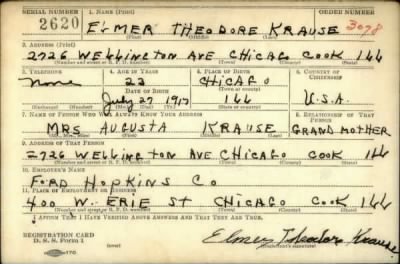 SERIAL NUMBER 1. NAME (Print) ORDER NUMBER
2620 ELMER THEODORE KRAUSE 3078
(First) (Middle) (Last)
2. ADDRESS (Print)
2726 WELLINGTON AVE CHICAGO COOK ILL
(Number and street or R. F. D. number) (Town) (County) (State)
3. TELEPHONE 4. AGE IN YEARS 5. PLACE OF BIRTH 6. COUNTRY OF CITIZENSHIP
None 22 CHICAGO
DATE OF BIRTH (Town or county)
July 27 1917 ILL U.S.A.
(Exchange) (Number) (Mo.) (Day) (Yr.) (State or country)
7. NAME OF PERSON WHO WILL ALWAYS KNOW YOUR ADDRESS 8. RELATIONSHIP OF THAT PERSON
MRS AUGUSTA KRAUSE GRAND MOTHER
(Mr., Mrs., Miss) (First) (Middle) (Last)
9. ADDRESS OF THAT PERSON
2726 WELLINGTON AVE CHICAGO COOK ILL
(Number and street or R. F. D. number) (Town) (County) (State)
10. EMPLOYER'S NAME
FORD HOPKINS CO
11. PLACE OF EMPLOYMENT OR BUSINESS
400 W. ERIE ST CHICAGO COOK ILL
(Number and street or R. F. D. number) (Town) (County) (State)
I AFFIRM THAT I HAVE VERIFIED ABOVE ANSWERS AND THAT THEY ARE TRUE.
REGISTRATION CARD
D. S. S. Form 1 Elmer Theodore Krause
(Registrant's signature)